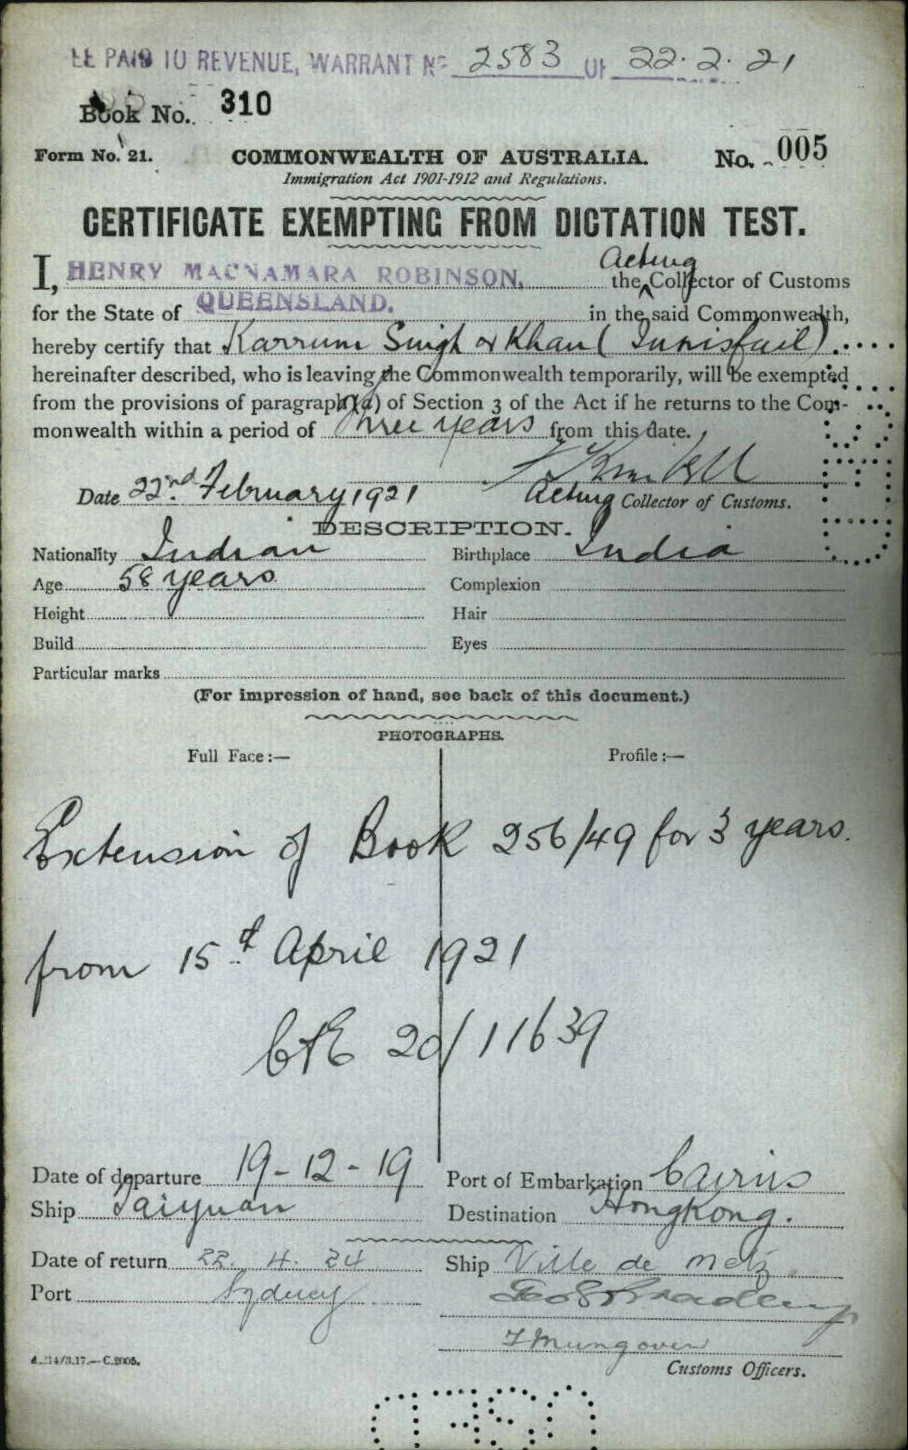 PAID TO REVENUE, WARRANT No 2583 OF 22.2.21
Book No. 310
Form No. 21. COMMONWEALTH OF AUSTRALIA. No. 005
Immigration Act 1901-1912 and Regulations.
CERTIFICATE EXEMPTING FROM DICTATION TEST.
I, HENRY MACNAMARA ROBINSON, the Acting Collector of Customs
for the State of QUEENSLAND. in the said Commonwealth,
hereby certify that Karrum Singh or Khan (Innisfail)
hereinafter described, who is leaving the Commonwealth temporarily, will be exempted
from the provisions of paragraph (a) of Section 3 of the Act if he returns to the Com-
monwealth within a period of Three years from this date.
Date 22nd February 1921 Acting Collector of Customs.
DESCRIPTION.
Nationality Indian Birthplace India
Age 58 years Complexion
Height Hair
Build Eyes
Particular marks
(For impression of hand, see back of this document.)
PHOTOGRAPHS.
Full Face:— Profile:—
Extension of Book 256/49 for 3 years.
from 15th April 1921
C&E 20/11639
Date of departure 19-12-19 Port of Embarkation Cairns
Ship Taiyuan Destination Hongkong.
Date of return 22.4.24 Ship Ville de Metz
Port Sydney
Customs Officers.